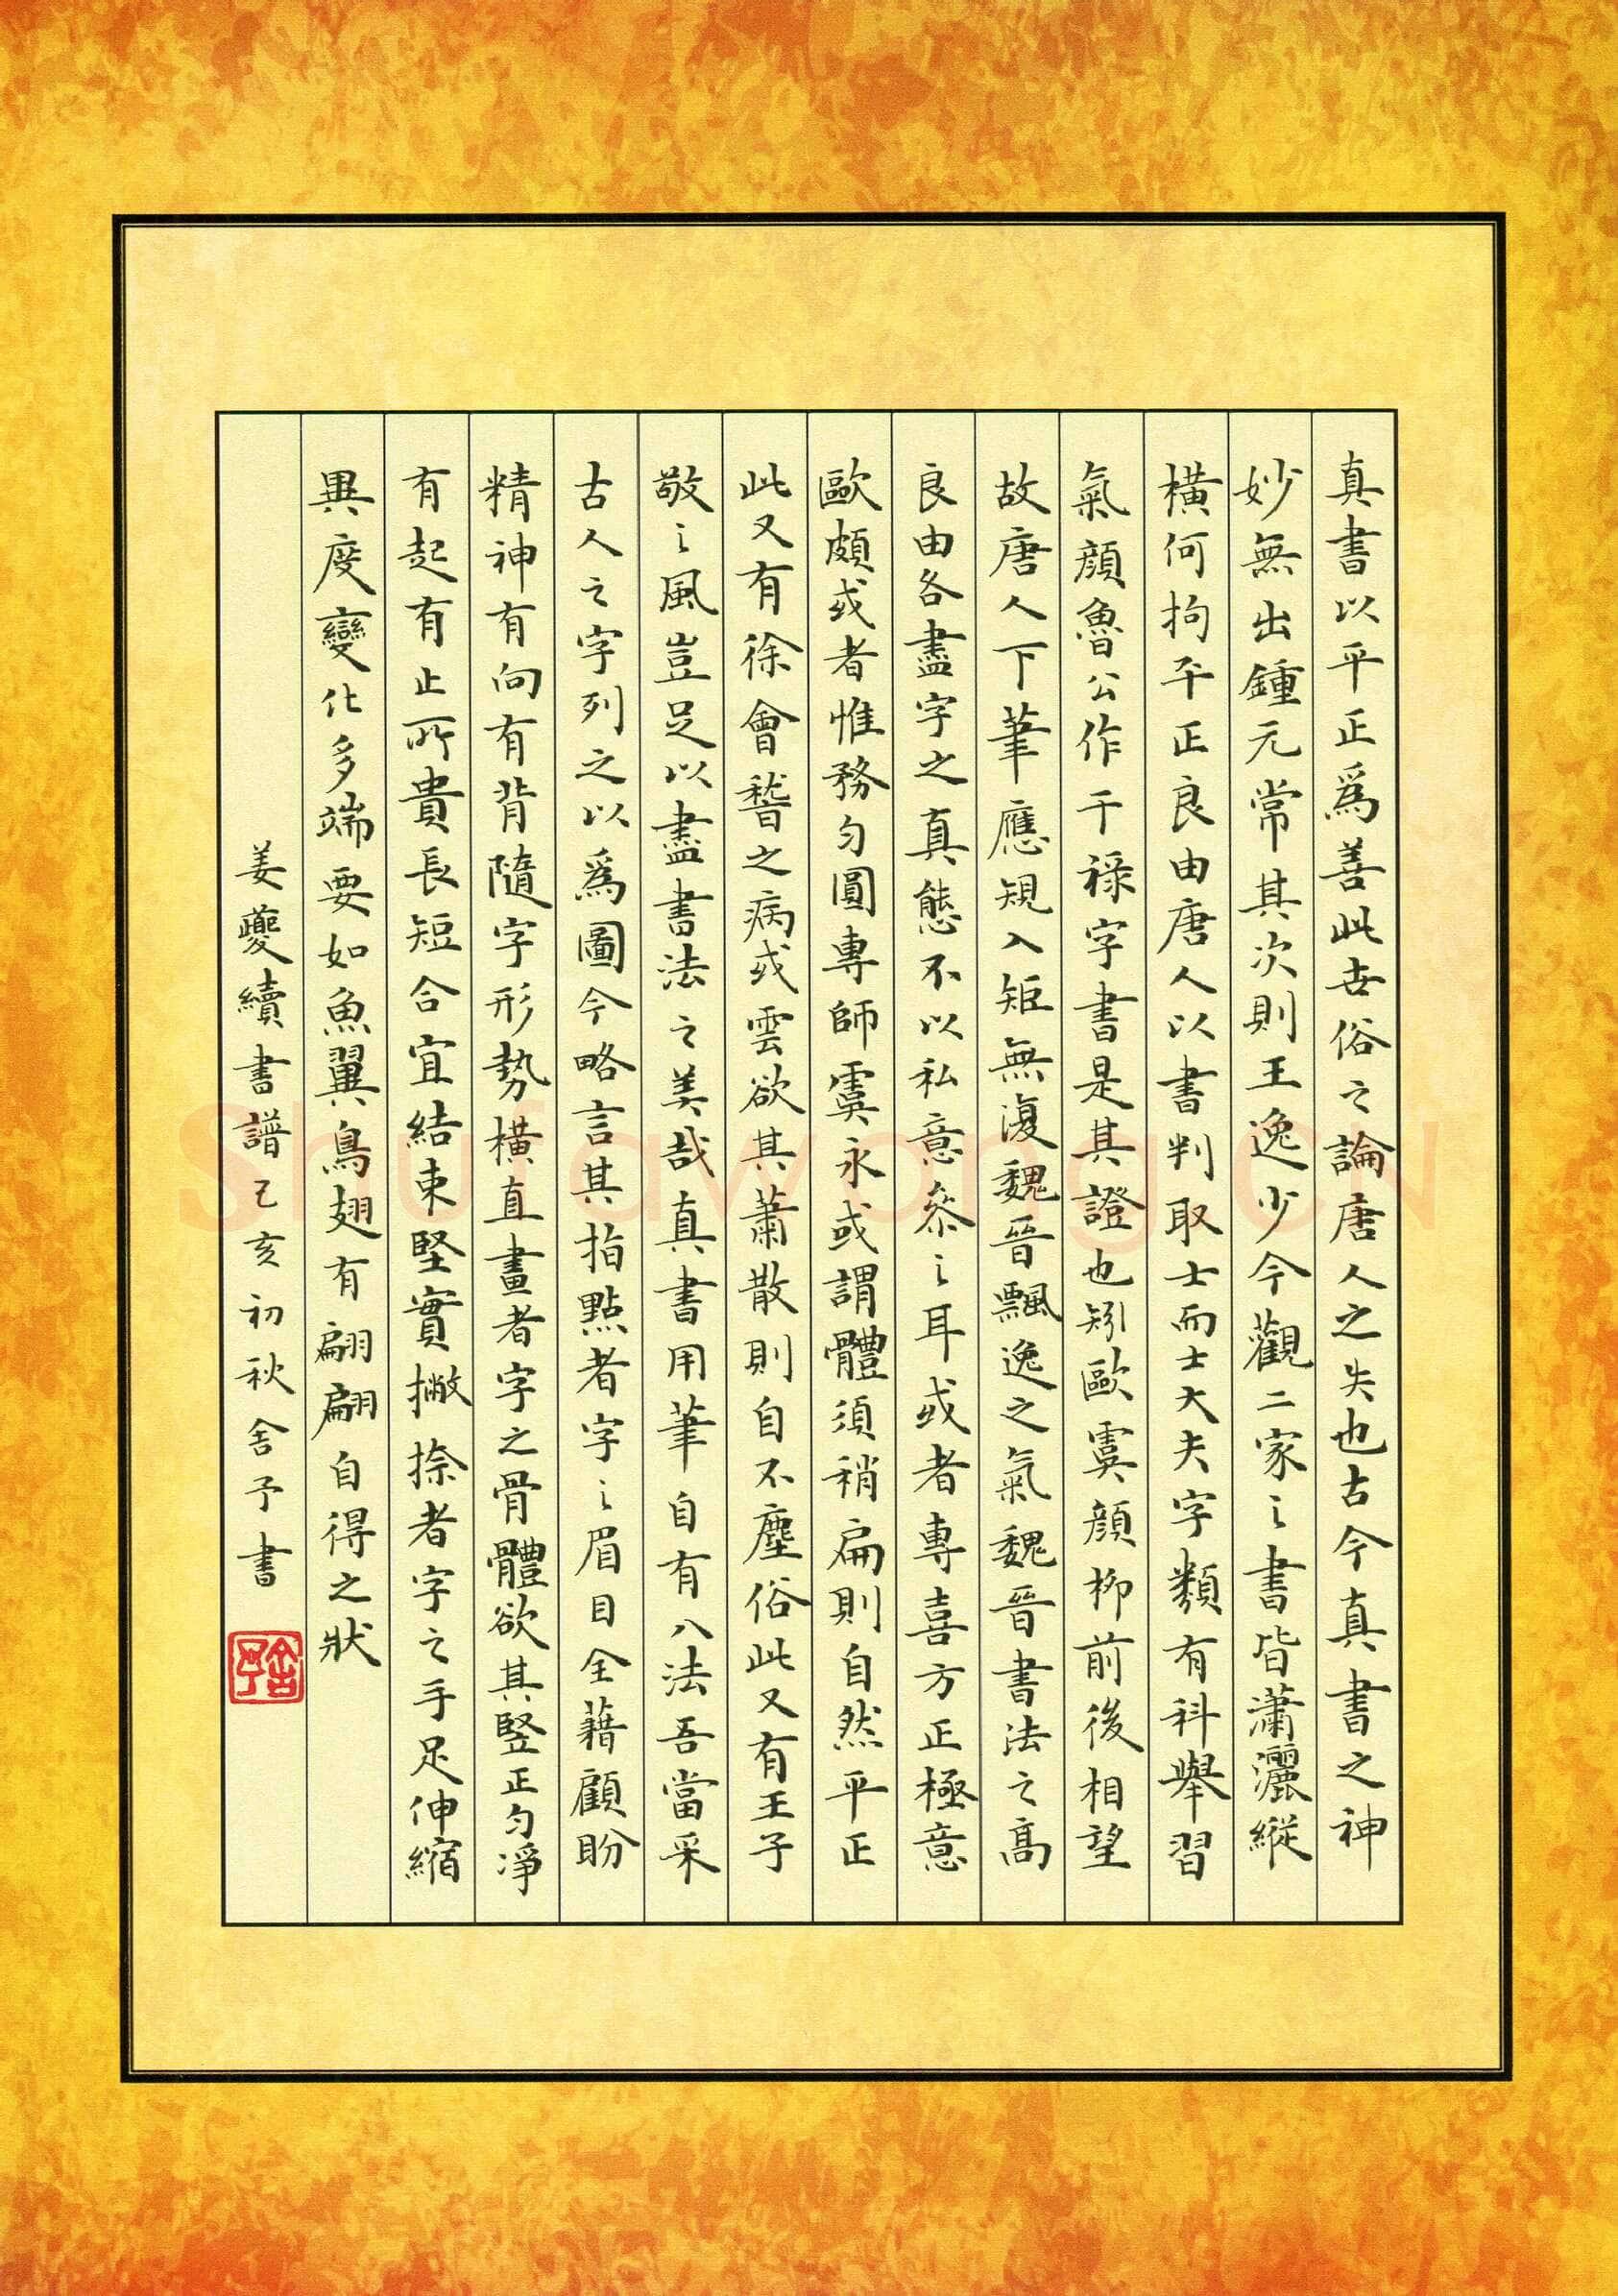 真書以平正為善此世俗之論唐人之失也古今真書之神
妙無出鍾元常其次則王逸少今觀二家之書皆瀟灑縱
橫何拘平正良由唐人以書判取士而士大夫字類有科舉習
氣顏魯公作干祿字書是其證也矧歐虞顏柳前後相望
故唐人下筆應規入矩無復魏晉飄逸之氣魏晉書法之高
良由各盡字之真態不以私意參之耳或者專喜方正極意
歐顏或者惟務勻圓專師虞永或謂體須稍扁則自然平正
此又有徐會稽之病或雲欲其蕭散則自不塵俗此又有王子
敬之風豈足以盡書法之美哉真書用筆自有八法吾當采
古人之字列之以為圖今略言其指點者字之眉目全藉顧盼
精神有向有背隨字形勢橫直畫者字之骨體欲其竪正勻淨
有起有止所貴長短合宜結束堅實撇捺者字之手足伸縮
異度變化多端要如魚翼鳥翅有翩翩自得之狀
姜夔續書譜己亥初秋舍予書
舍予
Shufawong.CN